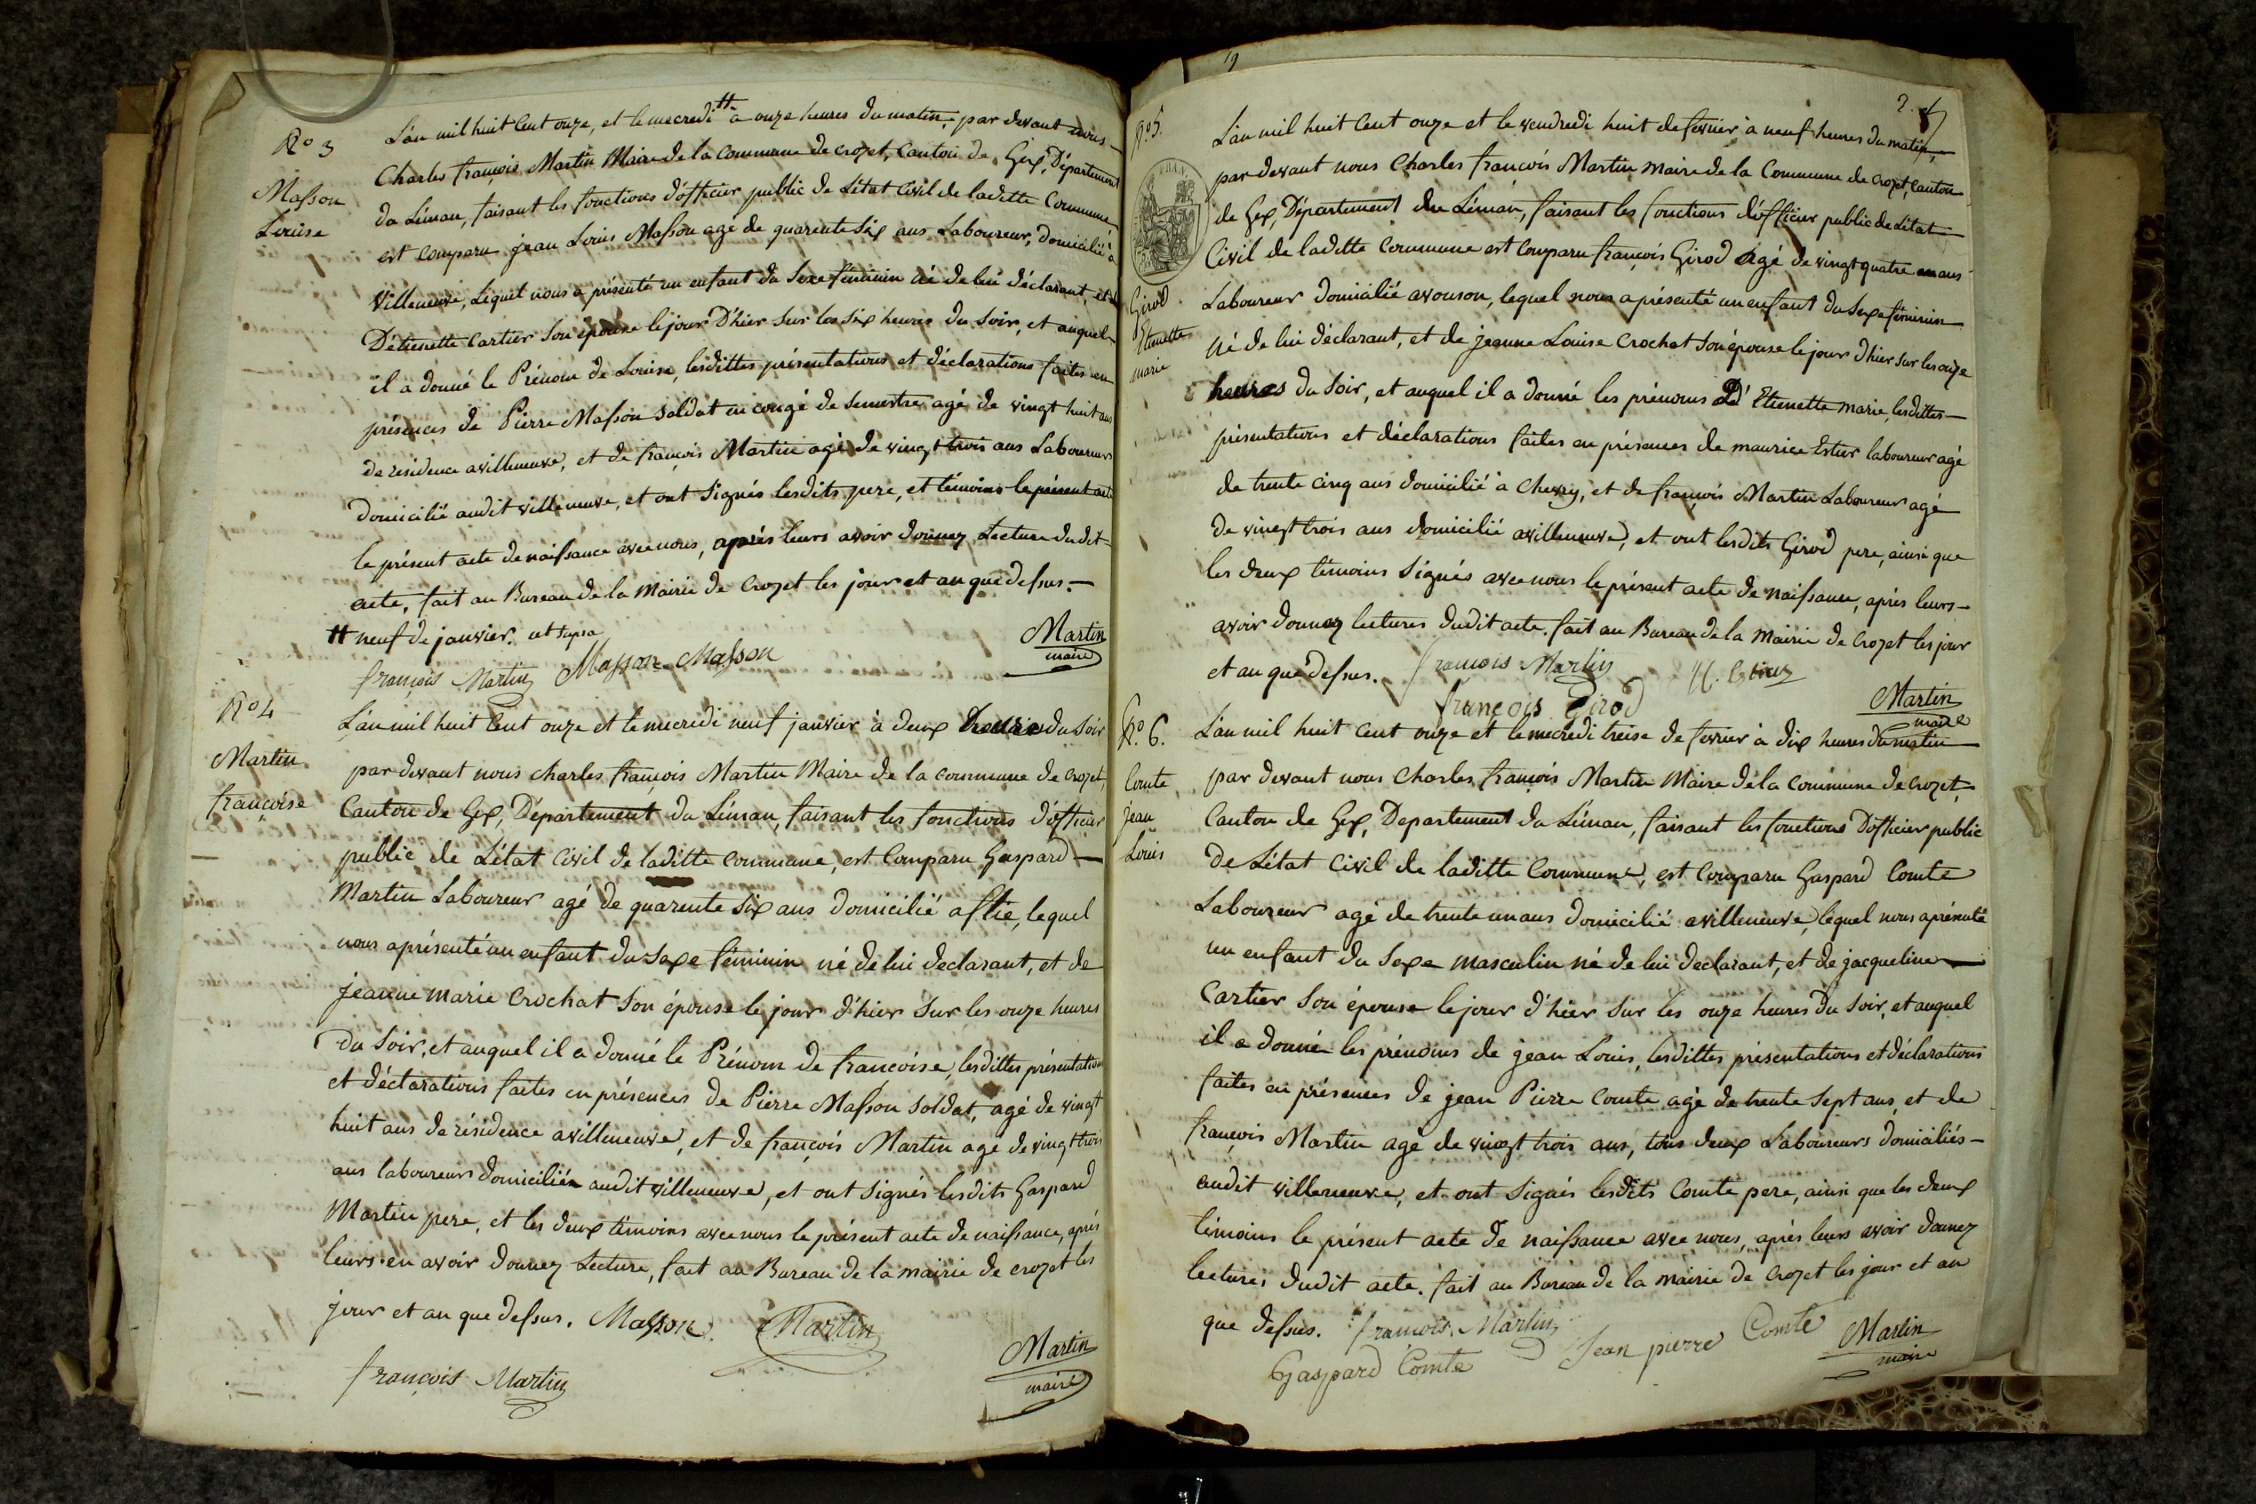 No 3
Masson
Louise
L'an mil huit Cent onze, et le mecredi # a onze heures du matin, par devant nous
Charles françois Martin Maire de la Commune de crozet, Canton de Gex, Département
du Léman, faisant les fonctions d'officier public de L'état Civil de laditte Commune,
est comparu jean Louis Masson agé de quarente Six ans Laboureur, domicilié à
Villeneuve, Lequel nous a présenté un enfant du Sexe féminin né de lui déclarant, et
D'étienette Cartier Son épouse le jour D'hier Sur les Six heures du Soir, et auquel
il a donné le Prénom de Louise, lesdittes présentations et déclarations faites en
présences de Pierre Masson soldat en congé de Semestre agé de vingt huit ans
de résidence avilleneuve, et de françois Martin agé de vingt trois ans Laboureur
Domicilié audit villeneuve, et ont Signés lesdits pere, et témoins le présent acte
le présent acte de naissance avec nous, après leurs avoir donnez Lecture dudit
acte, fait au Bureau de la Mairie de Crozet les jour et an que dessus.
# neuf de janvier. ut supra
françois Martin Masson Masson
Martin
maire
No 4
Martin
françoise
L'an mil huit Cent onze et le mecredi neuf janvier à deux heures du Soir
par devant nous charles françois Martin Maire de la commune de crozet,
Canton de Gex, Département du Léman, faisant les fonctions d'officier
public de L'état Civil de laditte commune, est Comparu Gaspard
Martin Laboureur agé de quarente Six ans domicilié aflie, lequel
nous aprésenté un enfant du Sexe féminin né de lui declarant, et de
jeanne marie Crochat Son épouse le jour d'hier Sur les onze heures
du Soir, et auquel il a donné le Prénom de francoise, lesdittes présentations
et déclarations faites en présences de Pierre Masson Soldat, agé de vingt
huit ans de résidence avilleneuve, et de françois Martin agé de vingt trois
ans laboureur domiciliés audit villeneuve, et ont Signés lesdits Gaspard
Martin pere, et les deux témoins avec nous le présent acte de naissance, après
leurs en avoir donnez Lecture, fait au Bureau de la mairie de crozet les
jour et an que dessus. Masson. Martin
françois Martin
Martin
maire
19
2.
No 5.
Girod
Etienette
marie
L'an mil huit Cent onze et le vendredi huit de fevrier à neuf heures du matin,
par devant nous Charles françois Martin Maire de la Commune de crozet, Canton
de Gex, Département du Léman, faisant les fonctions d'officier public de L'état
Civil de laditte Commune est Comparu françois Girod agé de vingt quatre ans
Laboureur domicilié avouson, lequel nous aprésenté un enfant du Sexe féminin
né de lui déclarant, et de jeanne Louise Crochat Son épouse le jour d'hier Sur les onze
heures du Soir, et auquel il a donné les prénoms D'Etienette marie, lesdittes
présentations et déclarations faites en présences de maurice Estier laboureur agé
de trente cinq ans domicilié à Chevry, et de françois Martin Laboureur agé
de vinegt trois ans domicilié avilleneuve, et ont lesdits Girod pere, ainsi que
les deux témoins Signés avec nous le présent acte de naissance, après leurs
avoir donnez lectures dudit acte. fait au Bureau de la Mairie de Crozet les jour
et an que dessus. françois Martin M. Estier
françois Girod
Martin
maire
No. 6.
Comte
jean
Louis
L'an mil huit Cent onze et le mecredi treise de fevrier à dix heures du matin
par devant nous Charles françois Martin Maire de la Commune de crozet,
Canton de Gex, Departement du Léman, faisant les fonctions D'officier public
De L'état Civil de laditte Commune, est Comparu Gaspard Comte
Laboureur agé de trente un ans domicilié avilleneuve, lequel nous aprésenté
un enfant du Sexe masculin né de lui declarant, et de jacqueline
Cartier Son épouse le jour d'hier Sur les onze heures du Soir, et auquel
il a donné les prénoms de jean Louis, lesdittes présentations et déclarations
faites en présences de jean Pierre Comte agé de trente Sept ans, et de
françois Martin agé de vinegt trois ans, tous deux Laboureurs domiciliés
audit villeneuve, et ont Signés lesdits Comte pere, ainsi que les deux
témoins le présent acte de naissance avec nous, après leurs avoir donnez
lectures dudit acte. fait au Bureau de la Mairie de Crozet les jour et an
que dessus. françois Martin
Gaspard Comte Jean pierre Comte
Martin
maire